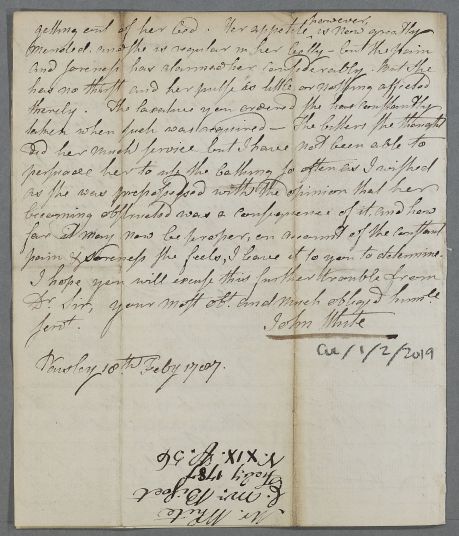 getting out of her Bed. Her appetite, however, is now greatly
mended. and she is regular in her belly – but the pain
and soreness has alarmed her considerably. But she
has no thirst and her pulse is little or nothing affected
thereby. The laxative you ordered she has constantly
taken when such was required – The bitters she thought
did her much service but I have not been able to
persuade her to use the bathing so often as I wished
as she was prepossessed with the opinion that her
becoming obstructed was a consequence of it. and how
far it may now be proper, on account of the constant
pain & soreness she feels, I leave it to you to determine.
I hope you will excuse this further trouble from
Dr. Sir, your most obt. and much obliged humle
servt. John White
Paisley 18th Feby 1787.
Cul/1/2/2019
Mr. White
Feby 1787
N. XIX. p. 56